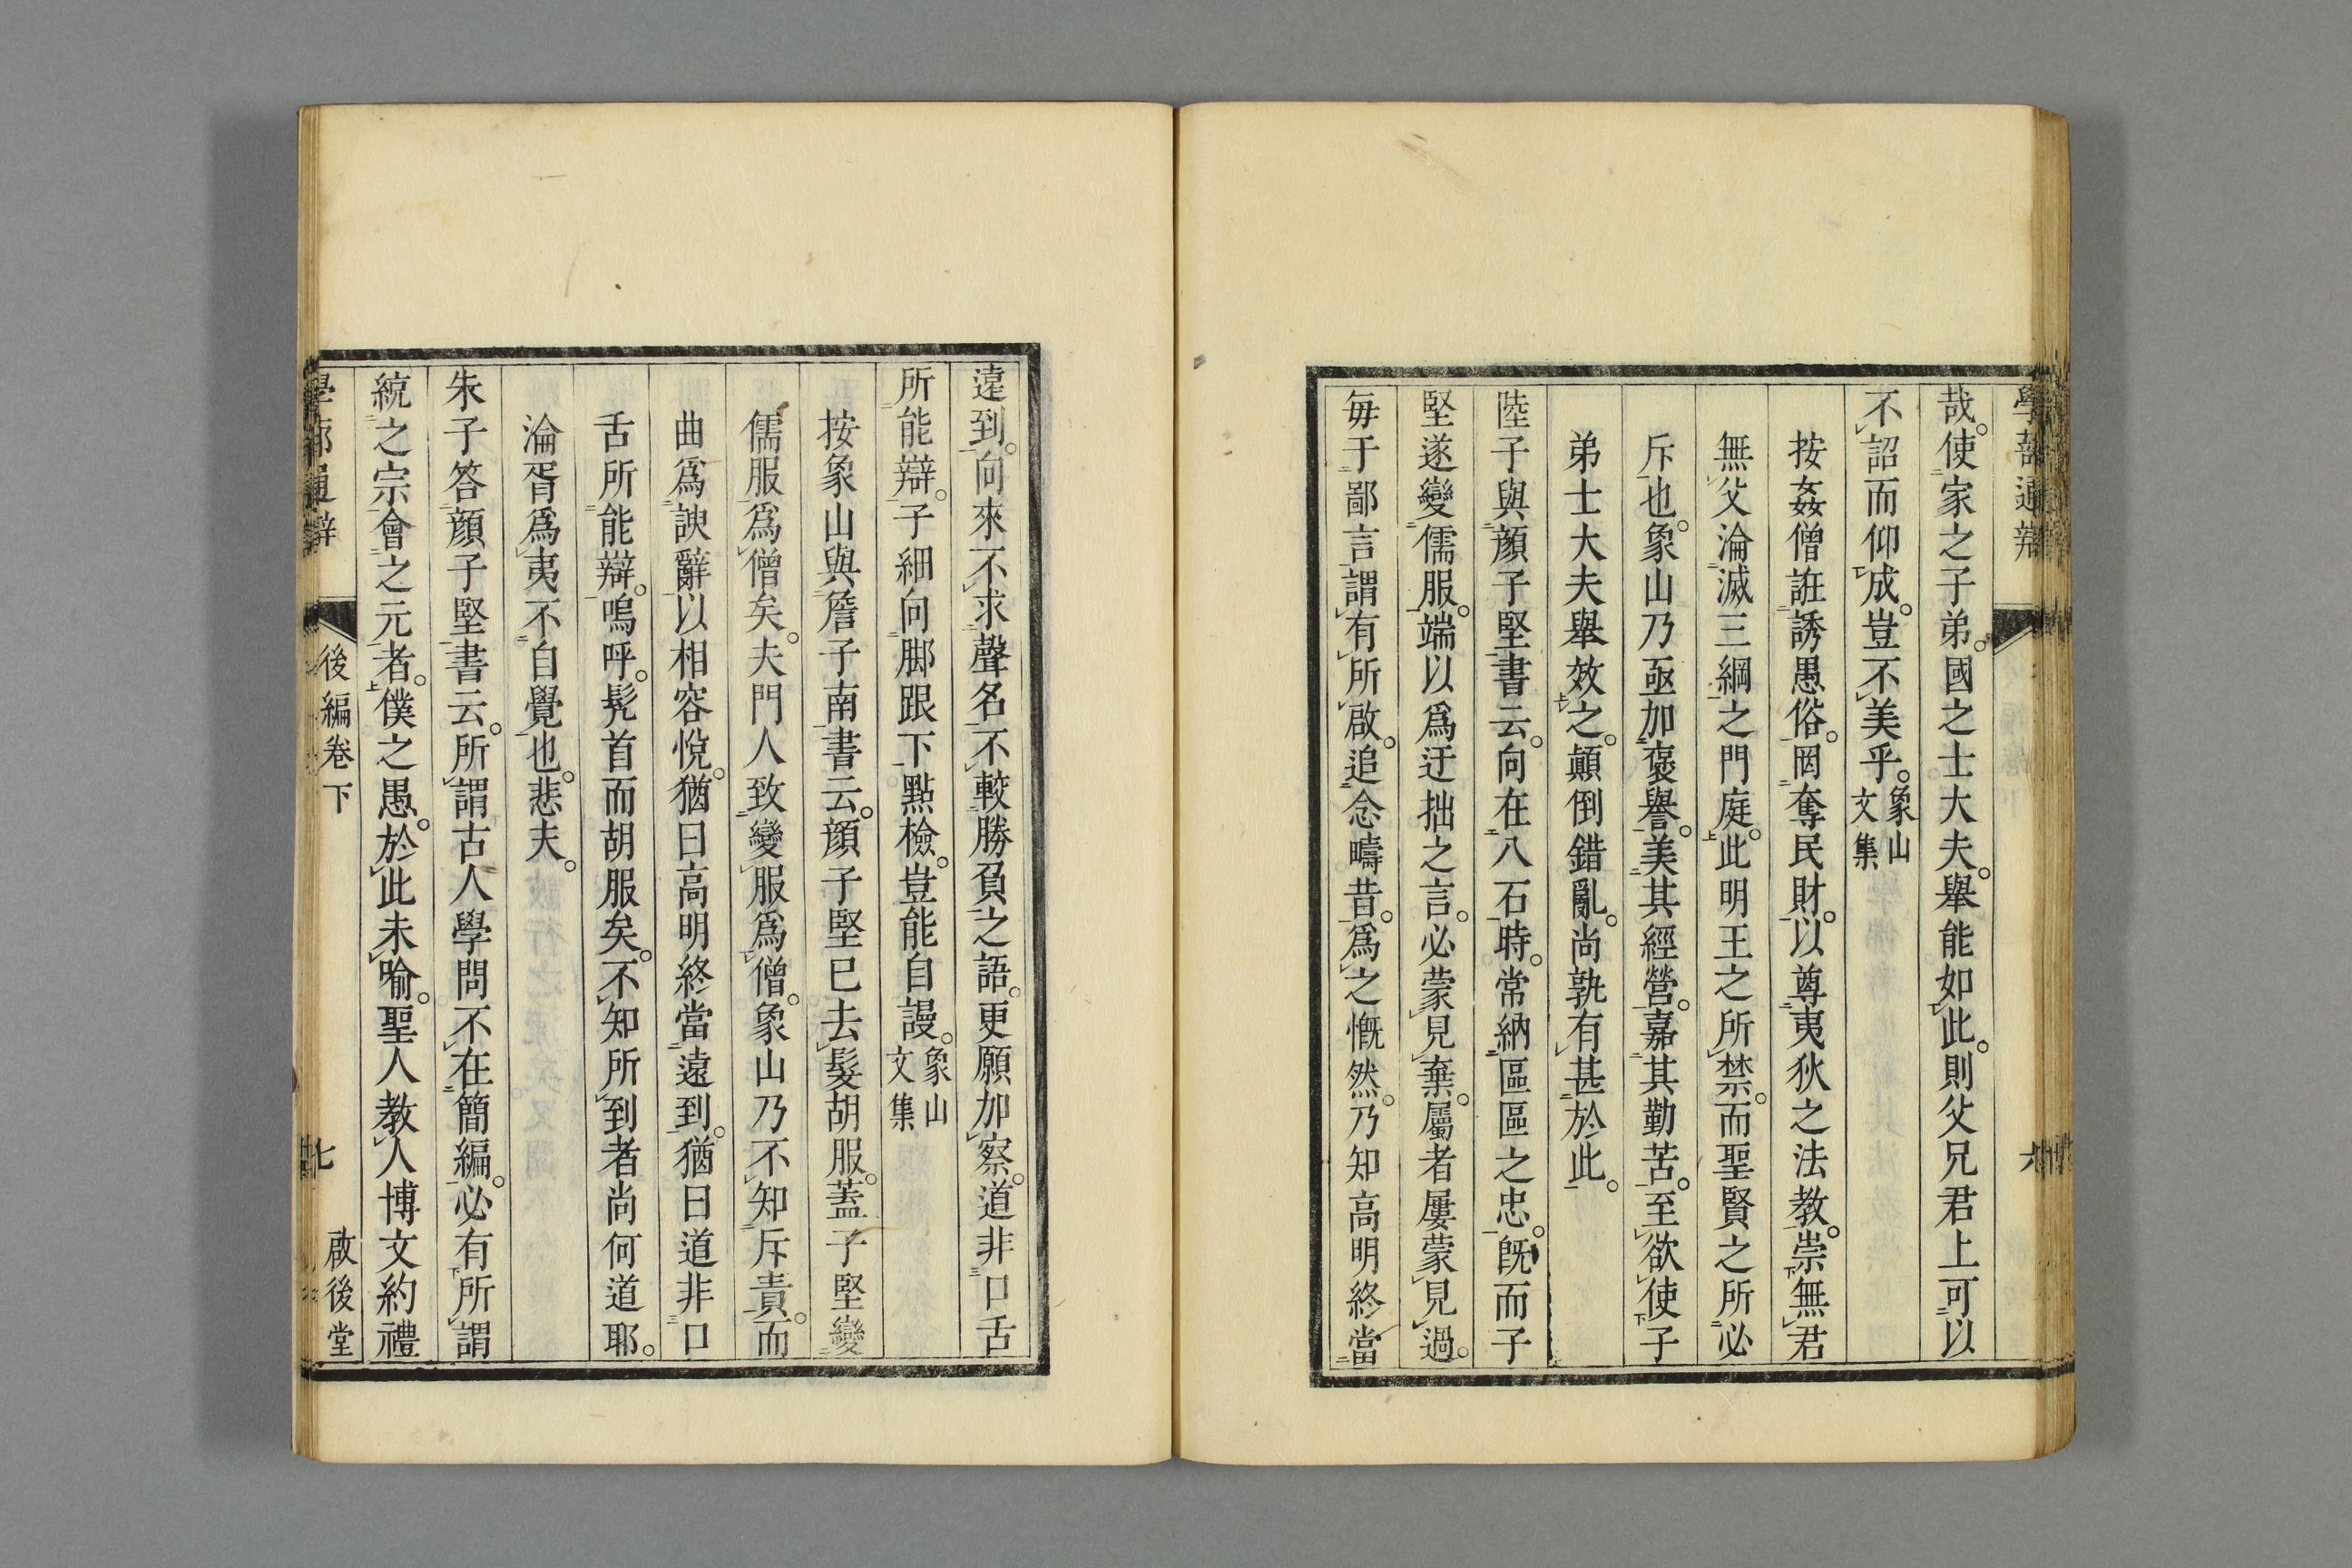 學蔀通辯
六
哉。使家之子弟。國之士大夫。舉能如此。則父兄君上可以
不詔而仰成。豈不美乎。象山文集
按姦僧誑誘愚俗。罔奪民財。以尊夷狄之法教。崇無君
無父淪滅三綱之門庭。此明王之所禁。而聖賢之所必
斥也。象山乃亟加褒譽。美其經營。嘉其勤苦。至欲使子
弟士大夫舉效之。顛倒錯亂。尚孰有甚於此。
陸子與顔子堅書云。向在八石時。常納區區之忠。旣而子
堅遂變儒服。端以爲迂拙之言。必蒙見棄。屬者屢蒙見過。
每于鄙言謂有所啟。追念疇昔。爲之慨然。乃知高明終當
遠到。向來不求聲名不較勝負之語。更願加察。道非口舌
所能辯。子細向脚跟下點檢。豈能自謾。象山文集
按象山與詹子南書云。顔子堅已去髮胡服。蓋子堅變
儒服爲僧矣。夫門人致變服爲僧。象山乃不知斥責。而
曲爲諛辭以相容悅。猶曰高明終當遠到。猶曰道非口
舌所能辯。嗚呼。髠首而胡服矣。不知所到者尚何道耶。
淪胥爲夷不自覺也。悲夫。
朱子答顔子堅書云。所謂古人學問不在簡編。必有所謂
統之宗會之元者。僕之愚。於此未喻。聖人教人博文約禮
學蔀通辯
後編卷下
七
啟後堂